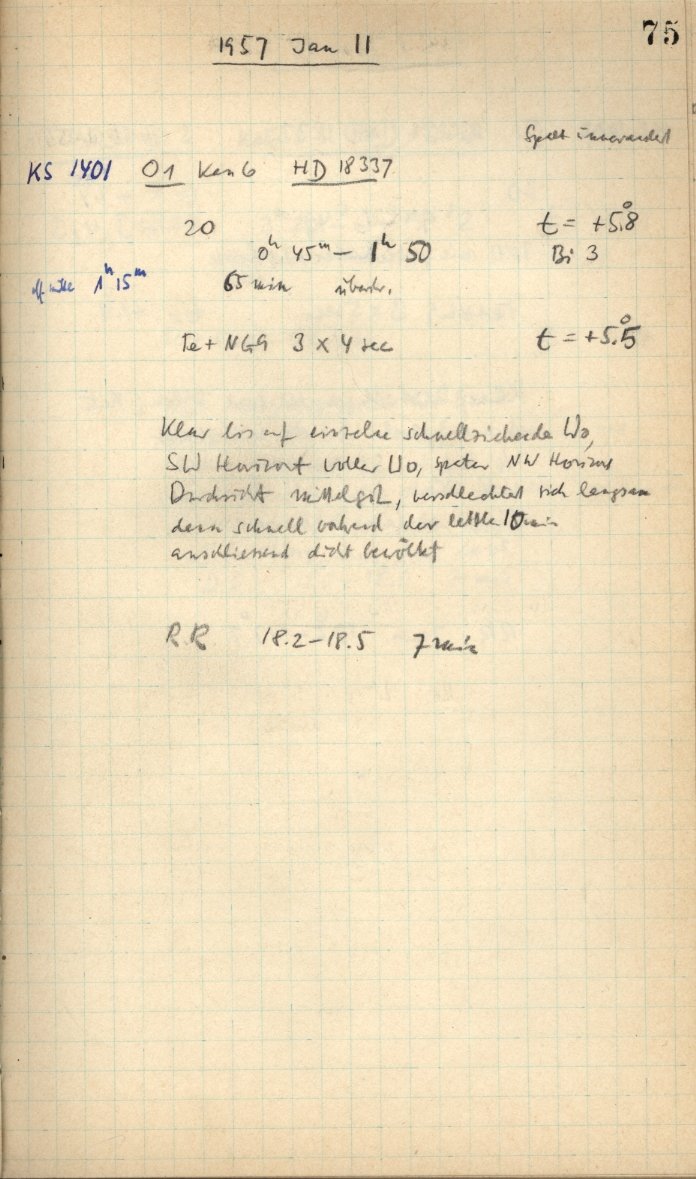 75
1957 Jan 11
Spalt unverändert
KS 1401 O1 Kan 6 HD 18337
20 t = +5.°8
0h 45m – 1h 50 Bi 3
eff mitte 1h 15m 65 min überbr.
Fe + NG9 3 x 4 sec t = +5.°5
Klar bis auf einzelne schnellziehende Wo,
SW Horizont voller Wo, später NW Horizont
Durchsicht mittelgut, verschlechtert sich langsam
dann schnell während der letzten 10 min
anschliessend dicht bewölkt
R.R 18.2–18.5 7 min